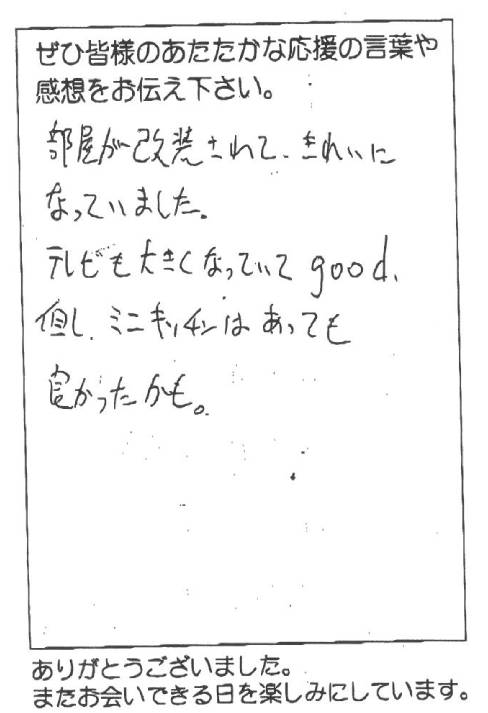 ぜひ皆様のあたたかな応援の言葉や
感想をお伝え下さい。
部屋が改装されて、きれいに
なっていました。
テレビも大きくなっていて good、
但し、ミニキッチンはあっても
良かったかも。
ありがとうございました。
またお会いできる日を楽しみにしています。